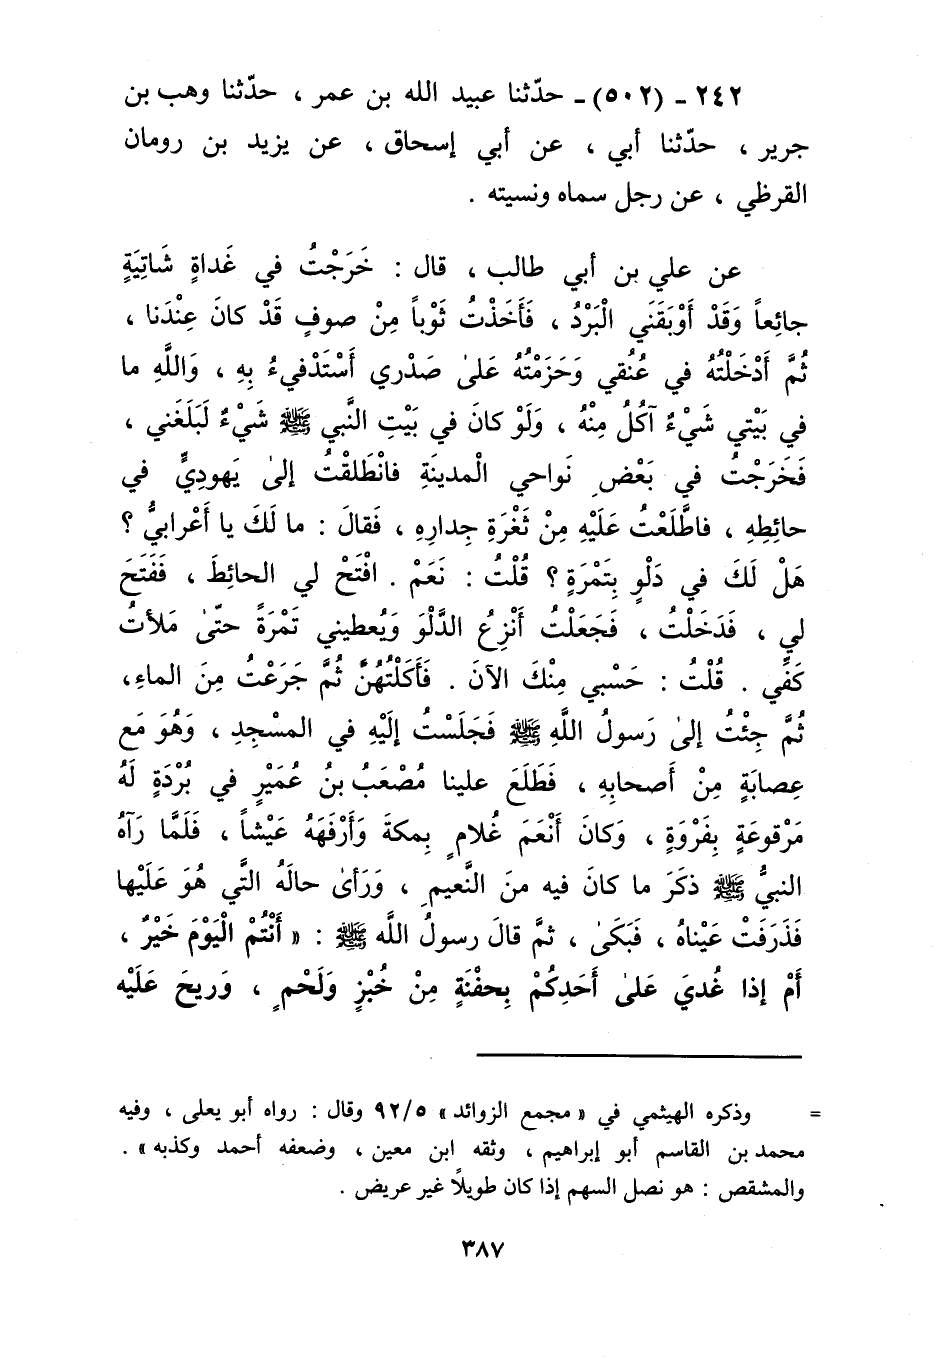 ٢٤٢ - (٥٠٢) - حدّثنا عبيد الله بن عمر ، حدّثنا وهب بن
جرير ، حدّثنا أبي ، عن أبي إسحاق ، عن يزيد بن رومان
القرظي ، عن رجل سماه ونسيته .
عن علي بن أبي طالب ، قال : خَرَجْتُ في غَداةٍ شَاتِيَةٍ
جائِعاً وَقَدْ أَوْبَقَنَي الْبَرْدُ ، فَأَخَذْتُ ثَوْباً مِنْ صوفٍ قَدْ كانَ عِنْدَنا ،
ثُمَّ أَدْخَلْتُهُ في عُنُقي وَحَزَمْتُهُ عَلىٰ صَدْري أَسْتَدْفيءُ بِهِ ، وَاللَّهِ ما
في بَيْتي شَيْءٌ آكُلُ مِنْهُ ، وَلَوْ كانَ في بَيْتِ النَّبي ﷺ شَيْءٌ لَبَلَغَني ،
فَخَرَجْتُ في بَعْضِ نَواحي الْمدينَةِ فانْطَلَقْتُ إلىٰ يَهوديٍّ في
حائِطِهِ ، فاطَّلَعْتُ عَلَيْهِ مِنْ ثَغْرَةِ جِدارِهِ ، فَقالَ : ما لَكَ يا أَعْرابيُّ ؟
هَلْ لَكَ في دَلْوٍ بِتَمْرَةٍ ؟ قُلْتُ : نَعَمْ . افْتَحْ لي الحائِطَ ، فَفَتَحَ
لي ، فَدَخَلْتُ ، فَجَعَلْتُ أَنْزِعُ الدَّلْوَ وَيُعطيني تَمْرَةً حتّىٰ مَلأتُ
كَفِّي . قُلْتُ : حَسْبي مِنْكَ الآنَ . فَأَكَلْتُهُنَّ ثُمَّ جَرَعْتُ مِنَ الماءِ،
ثُمَّ جِئْتُ إلىٰ رَسولُ اللَّهِ ﷺ فَجَلَسْتُ إلَيْهِ في المسْجِدِ ، وَهُوَ مَع
عِصابَةٍ مِنْ أَصحابِهِ ، فَطَلَعَ علينا مُصْعَبُ بنُ عُمَيْرٍ في بُرْدَةٍ لَهُ
مَرْقوعَةٍ بِفَرْوَةٍ ، وَكانَ أَنْعَمَ غُلامٍ بِمكةَ وَأَرْفَهَهُ عَيْشاً ، فَلَمَّا رَآهُ
النبيُّ ﷺ ذكَرَ ما كانَ فيه منَ النَّعيمِ ، وَرَأىٰ حالَهُ التَّي هُوَ عَلَيْها
فَذَرَفَتْ عَيْناهُ ، فَبَكَىٰ ، ثمَّ قالَ رسولُ اللَّه ﷺ : « أَنْتُمْ الْيَوْمَ خَيْرٌ ،
أَمْ إذا غُديَ عَلىٰ أَحَدِكُمْ بِحفْنَةٍ مِنْ خُبْزٍ وَلَحْمٍ ، وَريحَ عَلَيْه
= وذكره الهيثمي في « مجمع الزوائد » ٩٢/٥ وقال : رواه أبو يعلى ، وفيه
محمد بن القاسم أبو إبراهيم ، وثقه ابن معين ، وضعفه أحمد وكذبه » .
والمشقص : هو نصل السهم إذا كان طويلًا غير عريض .
٣٨٧